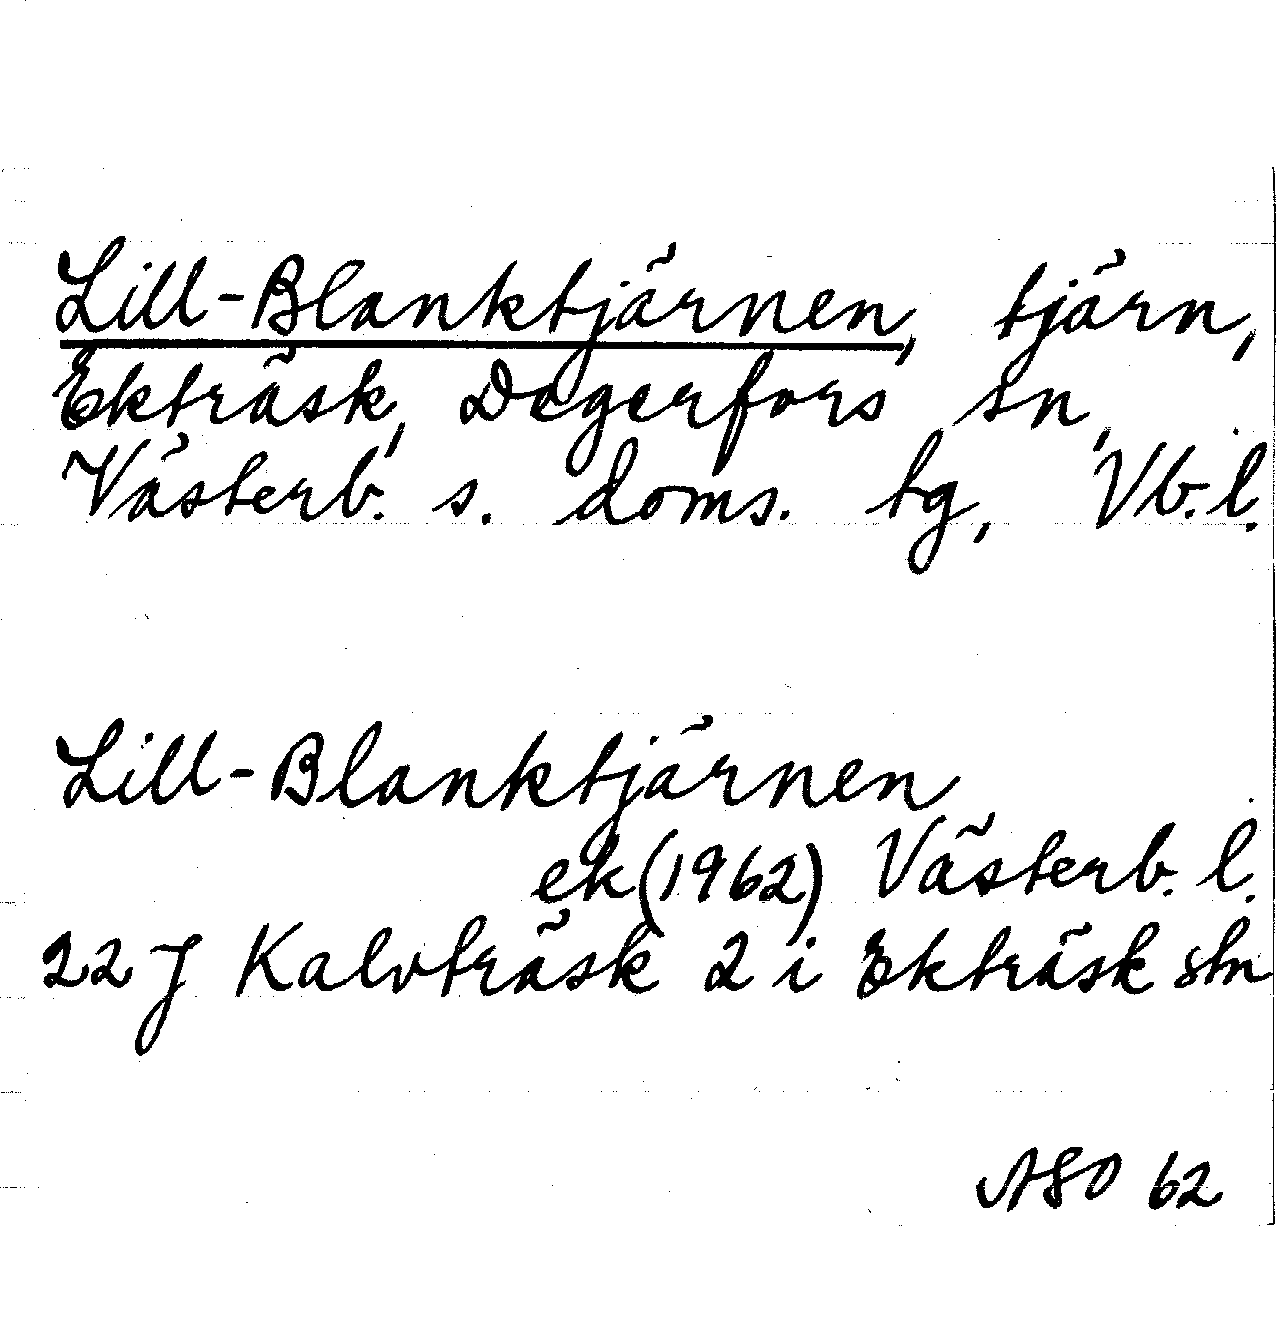 Lill-Blanktjärnen, tjärn,
Ekträsk, Degerfors sn,
Västerb. s. doms. tg, Vb. l.
Lill-Blanktjärnen
ek (1962) Västerb. l.
22 J Kalvträsk 2 i Ekträsk stn
ASO 62